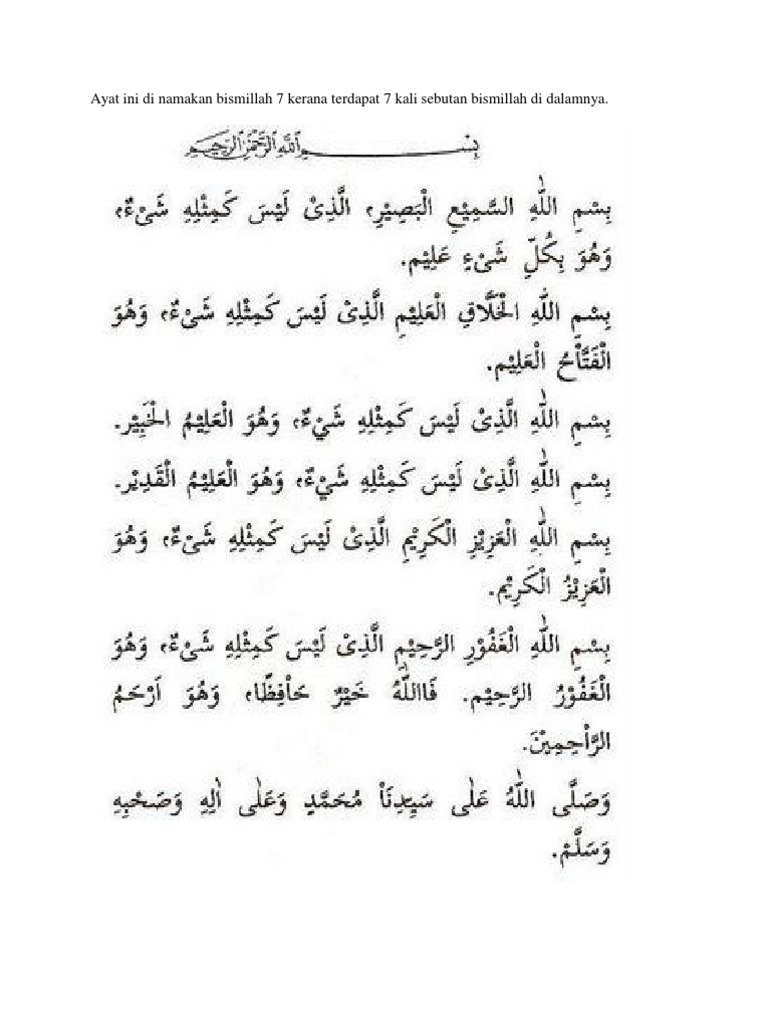 Ayat ini di namakan bismillah 7 kerana terdapat 7 kali sebutan bismillah di dalamnya.
بِسْمِ اللهِ الرَّحْمٰنِ الرَّحِيْمِ
بِسْمِ اللّٰهِ السَّمِيْعِ الْبَصِيْرِ، الَّذِىْ لَيْسَ كَمِثْلِهِ شَىْءٌ،
وَهُوَ بِكُلِّ شَىْءٍ عَلِيْم.
بِسْمِ اللّٰهِ الْخَلَّاقِ الْعَلِيْمِ الَّذِىْ لَيْسَ كَمِثْلِهِ شَىْءٌ، وَهُوَ
الْفَتَّاحُ الْعَلِيْم.
بِسْمِ اللّٰهِ الَّذِىْ لَيْسَ كَمِثْلِهِ شَيْءٌ، وَهُوَ الْعَلِيْمُ الْخَبِيْر.
بِسْمِ اللّٰهِ الَّذِىْ لَيْسَ كَمِثْلِهِ شَىْءٌ، وَهُوَ الْعَلِيْمُ الْقَدِيْر.
بِسْمِ اللّٰهِ الْعَزِيْزِ الْكَرِيْمِ الَّذِىْ لَيْسَ كَمِثْلِهِ شَىْءٌ، وَهُوَ
الْعَزِيْزُ الْكَرِيْم.
بِسْمِ اللّٰهِ الْغَفُوْرِ الرَّحِيْمِ الَّذِىْ لَيْسَ كَمِثْلِهِ شَىْءٌ، وَهُوَ
الْغَفُوْرُ الرَّحِيْم. فَااللّٰهُ خَيْرٌ حَاْفِظًا، وَهُوَ اَرْحَمُ
الرَّاْحِمِيْنَ.
وَصَلَّى اللّٰهُ عَلٰى سَيِّدِنَاْ مُحَمَّدٍ وَعَلٰى اٰلِهِ وَصَحْبِهِ
وَسَلَّمْ.